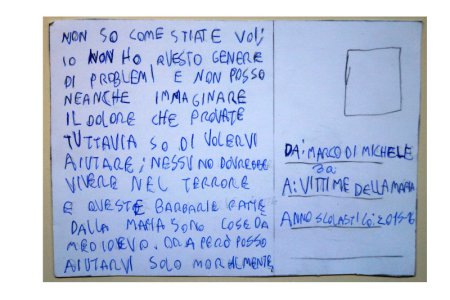 NON SO COME STIATE VOI;
IO NON HO QUESTO GENERE
DI PROBLEMI E NON POSSO
NEANCHE IMMAGINARE
IL DOLORE CHE PROVATE
TUTTAVIA SO DI VOLERVI
AIUTARE; NESSUNO DOVREBBE
VIVERE NEL TERRORE
E QUESTE BARBARIE FATTE
DALLA MAFIA SONO COSE DA
MEDIOEVO. ORA PERÒ POSSO
AIUTARVI SOLO MORALMENTE
DA: MARCO DI MICHELE
3a
A: VITTIME DELLA MAFIA
ANNO SCOLASTICO: 2015-16